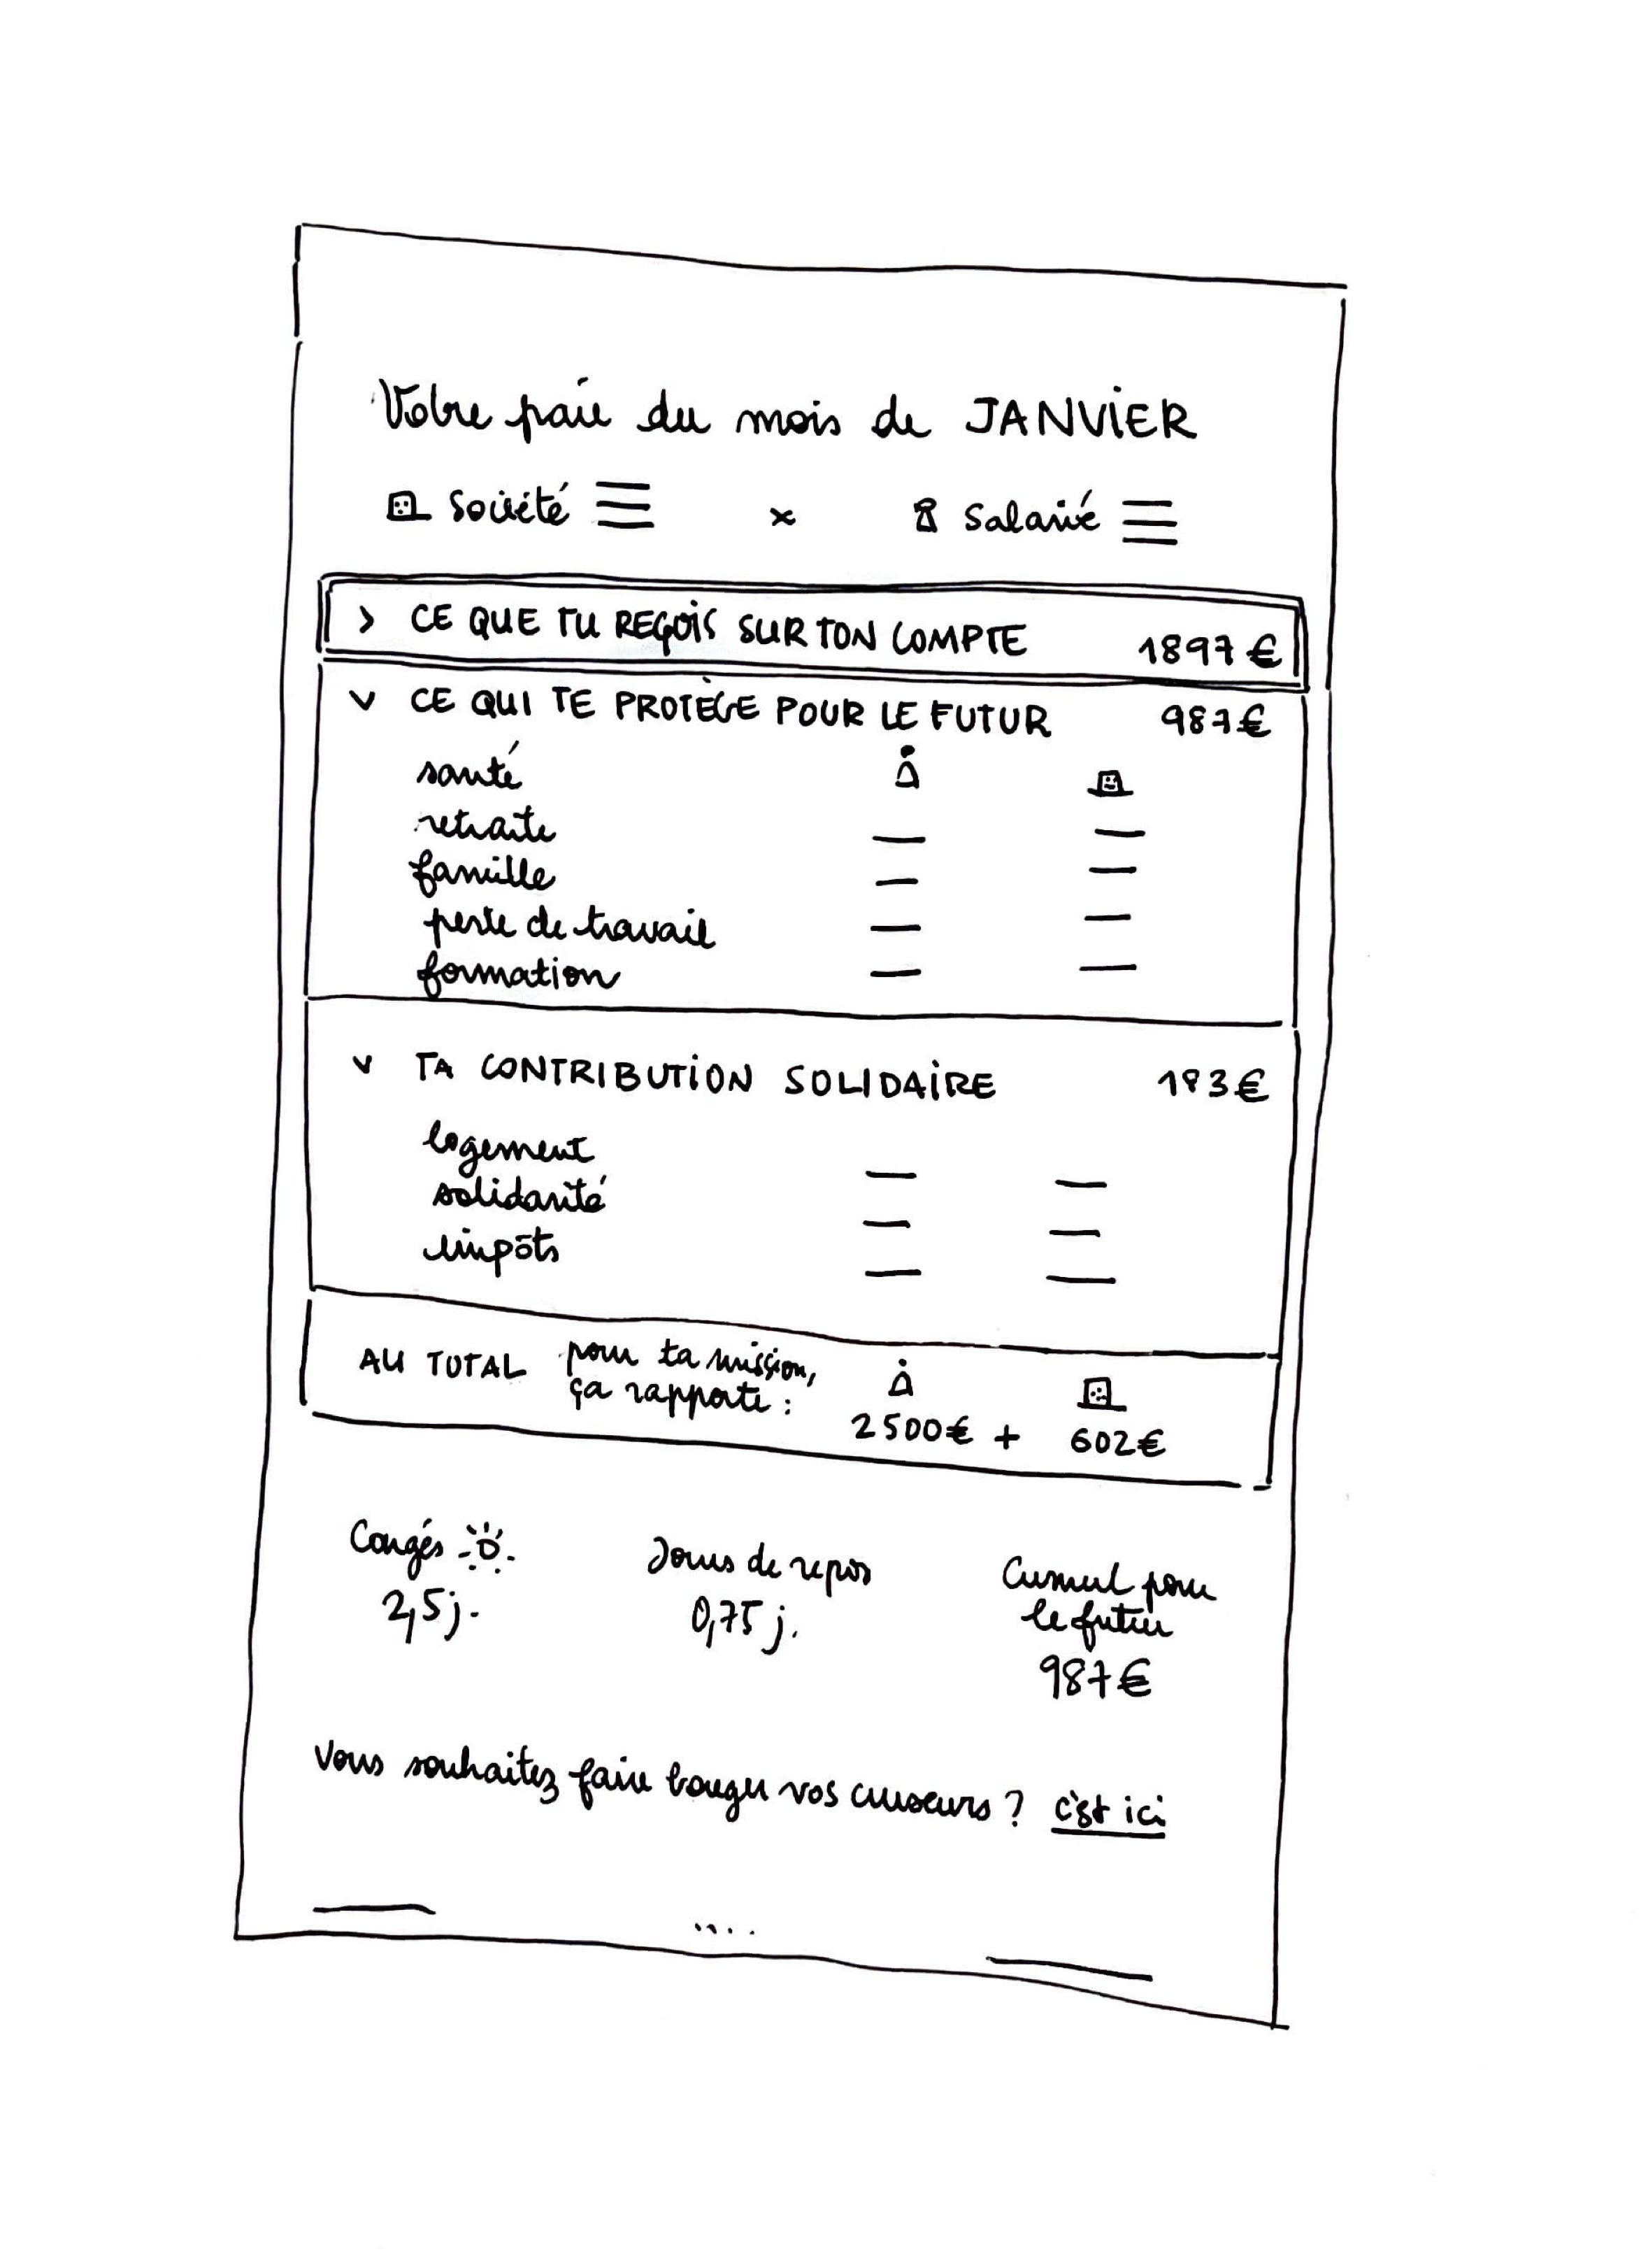 Votre paie du mois de JANVIER
Société x Salarié
> CE QUE TU REÇOIS SUR TON COMPTE 1897 €
v CE QUI TE PROTÈGE POUR LE FUTUR 987 €
santé
retraite
famille
perte de travail
formation
v TA CONTRIBUTION SOLIDAIRE 183 €
logement
solidarité
impôts
AU TOTAL pour ta mission,
ça rapporte :
2500 € + 602 €
Congés Jours de repos Cumul pour
le futur
2,5 j. 0,75 j.
987 €
Vous souhaitez faire bouger vos curseurs ? c'est ici
....